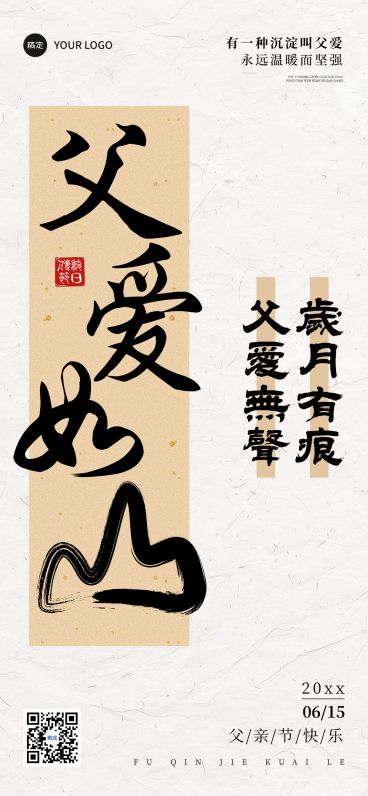 稿定 YOUR LOGO
有一种沉淀叫父爱
永远温暖而坚强
父爱如山
歲月有痕
父愛無聲
20xx
06/15
父/亲/节/快/乐
FU QIN JIE KUAI LE